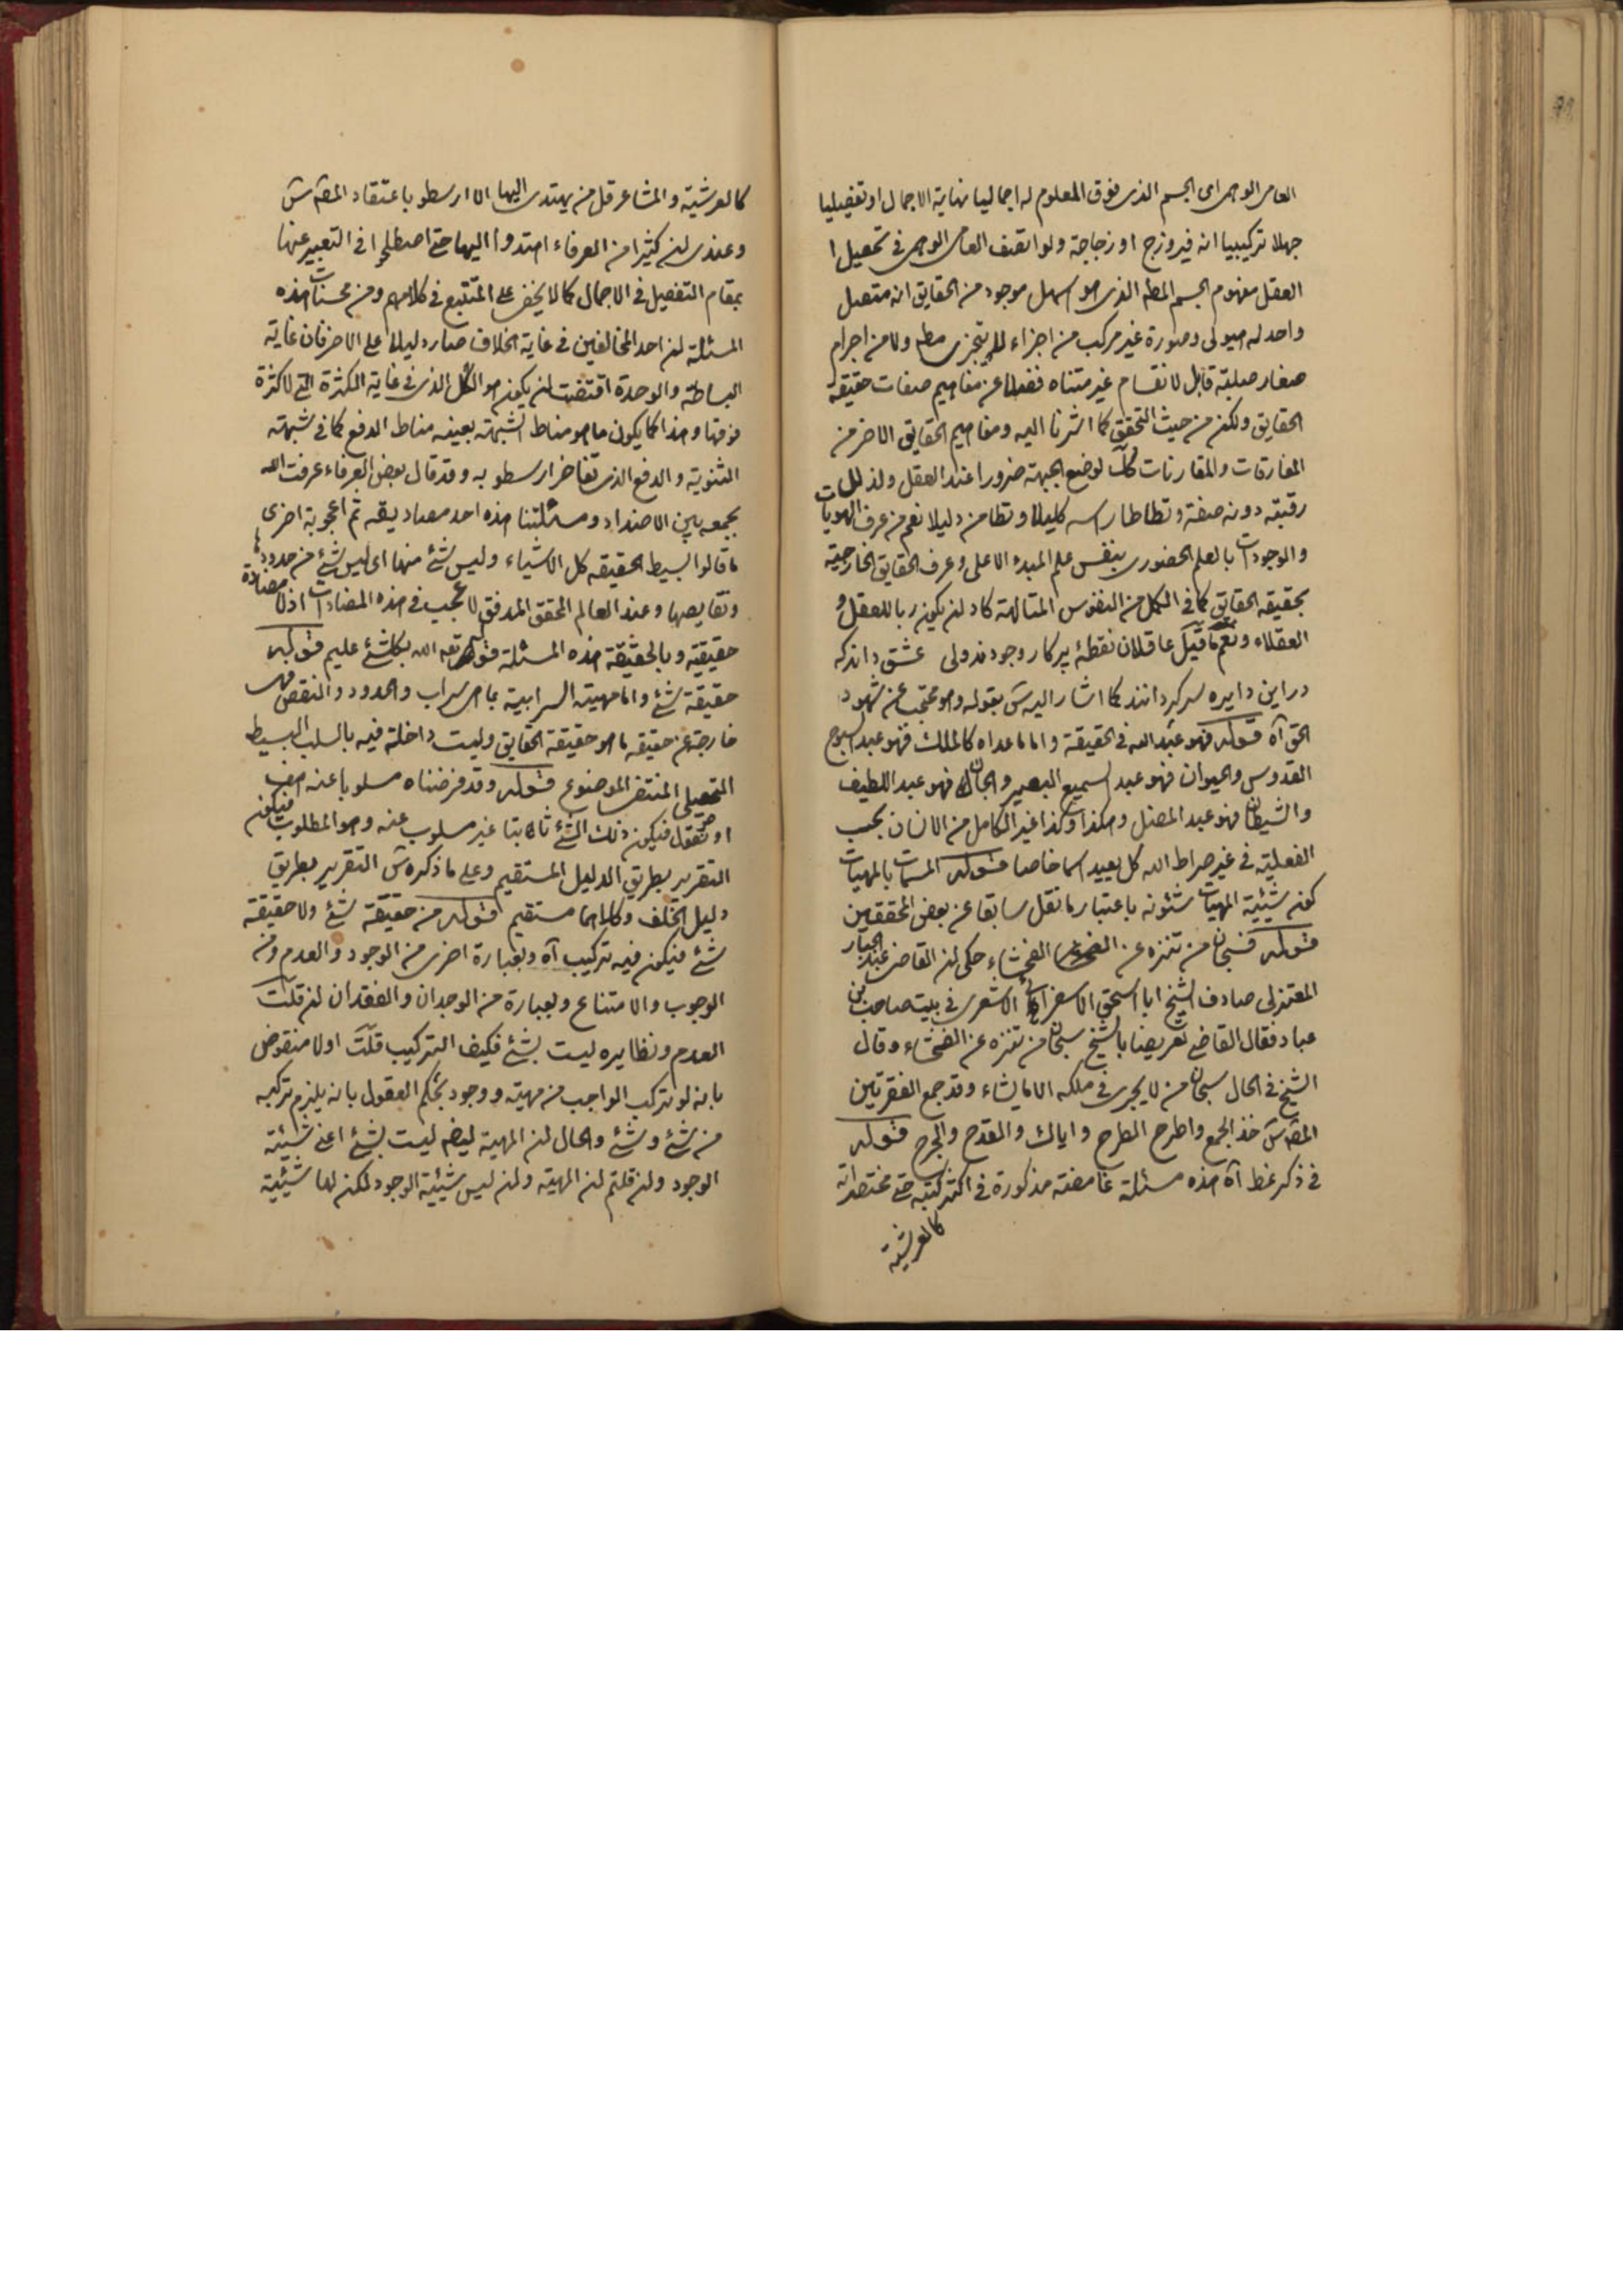 العامى الوهمى اى الجسم الذى فوق المعلوم له اجماليا نهاية الاجمال او تفصيليا
جهلا تركيبيا انه فيروزج او زجاجة ولو اتصف العامى الوهمى فى تحصيل
العقل مفهوم الجسم المطلق الذى هو اسهل موجود من الحقايق انه متصل
واحد له هيولى وصورة غير مركب من اجزاء لا يتجزى مطلقا ولا من اجرام
صغار صلبة قابل لانقسام غير متناه فضلا عن مفاهيم صفات حقيقة
الحقايق ولكن من حيث التحقق كما اشرنا اليه ومفاهيم الحقايق الاخر من
المفارقات والمقارنات كل لوضع الجبهة ضرورا عند العقل ولذلك
رقبته دونه صفة وتطاطا راسه كليلا وتطامن دليلا نعم من عرف الهويات
والوجودات بالعلم الحضورى بنفس علم المبدء الاعلى وعرف الحقايق الخارجية
بحقيقة الحقايق كما فى الكمل من النفوس المتالهة كاد ان يكون ربا للعقل و
العقلاء ونعم ما قيل عاقلان نقطهٔ پرکار وجودند ولى عشق داند که
در این دایره سرگردانند كما اشار اليه س بقوله وهو محتجب عن شهود
الحق آه قوله فهو عبد الله فى الحقيقة واما ما عداه كالملك فهو عبد السبوح
القدوس والحيوان فهو عبد السميع البصير والجان فهو عبد اللطيف
والشيطان فهو عبد المضل وهكذا وكذا غير الكامل من الانسان بحسب
الفعلية فى غير صراط الله كل يعبد اسما خاصا قوله المسمات بالمهيات
كون شيئية المهيات شئونه باعتبار ما نقل سابقا عن بعض المحققين
قوله فسبحان من تنزه عن الفحشاء حكى ان القاضى عبد الجبار
المعتزلى صادف الشيخ ابا اسحق الاسفراينى الاشعرى فى بيت صاحب بن
عباد فقال القاضى تعريضا بالشيخ سبحان من تنزه عن الفحشاء وقال
الشيخ فى الحال سبحان من لا يجرى فى ملكه الا ما يشاء وقد جمع الفقرتين
المصنف س خذ الجمع واطرح الطرح واياك والقدح والجرح قوله
فى ذكر نمط آه هذه مسئلة غامضة مذكورة فى اكثر كتبه حتى مختصراته
كالعرشية
كالعرشية والمشاعر قل من يهتدى اليها الا ارسطو باعتقاد المصنف س
وعندى ان كثيرا من العرفاء اهتدوا اليها حتى اصطلحوا فى التعبير عنها
بمقام التفصيل فى الاجمال كما لا يخفى على المتتبع فى كلامهم ومن محسنات هذه
المسئلة ان احد المخالفين فى غاية الخلاف صار دليلا على الاخر فان غاية
البساطة والوحدة اقتضت ان يكون هو الكل الذى فى غاية الكثرة التى لا كثرة
فوقها وهذا كما يكون ما هو مناط الشبهة بعينه مناط الدفع كما فى شبهة
الثنوية والدفع الذى تفاخر ارسطو به وقد قال بعض العرفاء عرفت الله
بجمعه بين الاضداد ومسئلتنا هذه احد مصاديقه ثم اعجوبة اخرى
ما قالوا بسيط الحقيقة كل الاشياء وليس شئ منها اى ليس شئ من حدودها
ونقايصها وعند العالم المحقق المدقق لا عجب فى هذه المضادات اذ لا مضادة
حقيقية وبالحقيقة هذه المسئلة قوله تعه الله بكل شئ عليم قوله
حقيقة شئ واما مهيته السرابية بما هى سراب والحدود والنقص فهى
خارجة عن حقيقة ما هو حقيقة الحقايق وليست داخلة فيه بالسلب البسيط
التحصيلى المنتفى الموضوع قوله وقد فرضناه مسلوبا عنه هف
او نقول فيكون ذلك الشئ ثابتا غير مسلوب عنه وهو المطلوب فيكون
التقرير بطريق الدليل المستقيم وعلى ما ذكره س التقرير بطريق
دليل الخلف وكلاهما مستقيم قوله من حقيقة شئ ولا حقيقة
شئ فيكون فيه تركيب آه وبعبارة اخرى من الوجود والعدم ومن
الوجوب والامتناع وبعبارة من الوجدان والفقدان ان قلت
العدم ونظايره ليست بشئ فكيف التركيب قلت اولا منقوض
بانه لو تركب الواجب من مهية ووجود يحكم العقول بانه يلزم تركبه
من شئ وشئ والحال ان المهية ايضا ليست بشئ اعنى شيئية
الوجود وان قلتم ان المهية وان ليس شيئية الوجود لكن لها شيئية